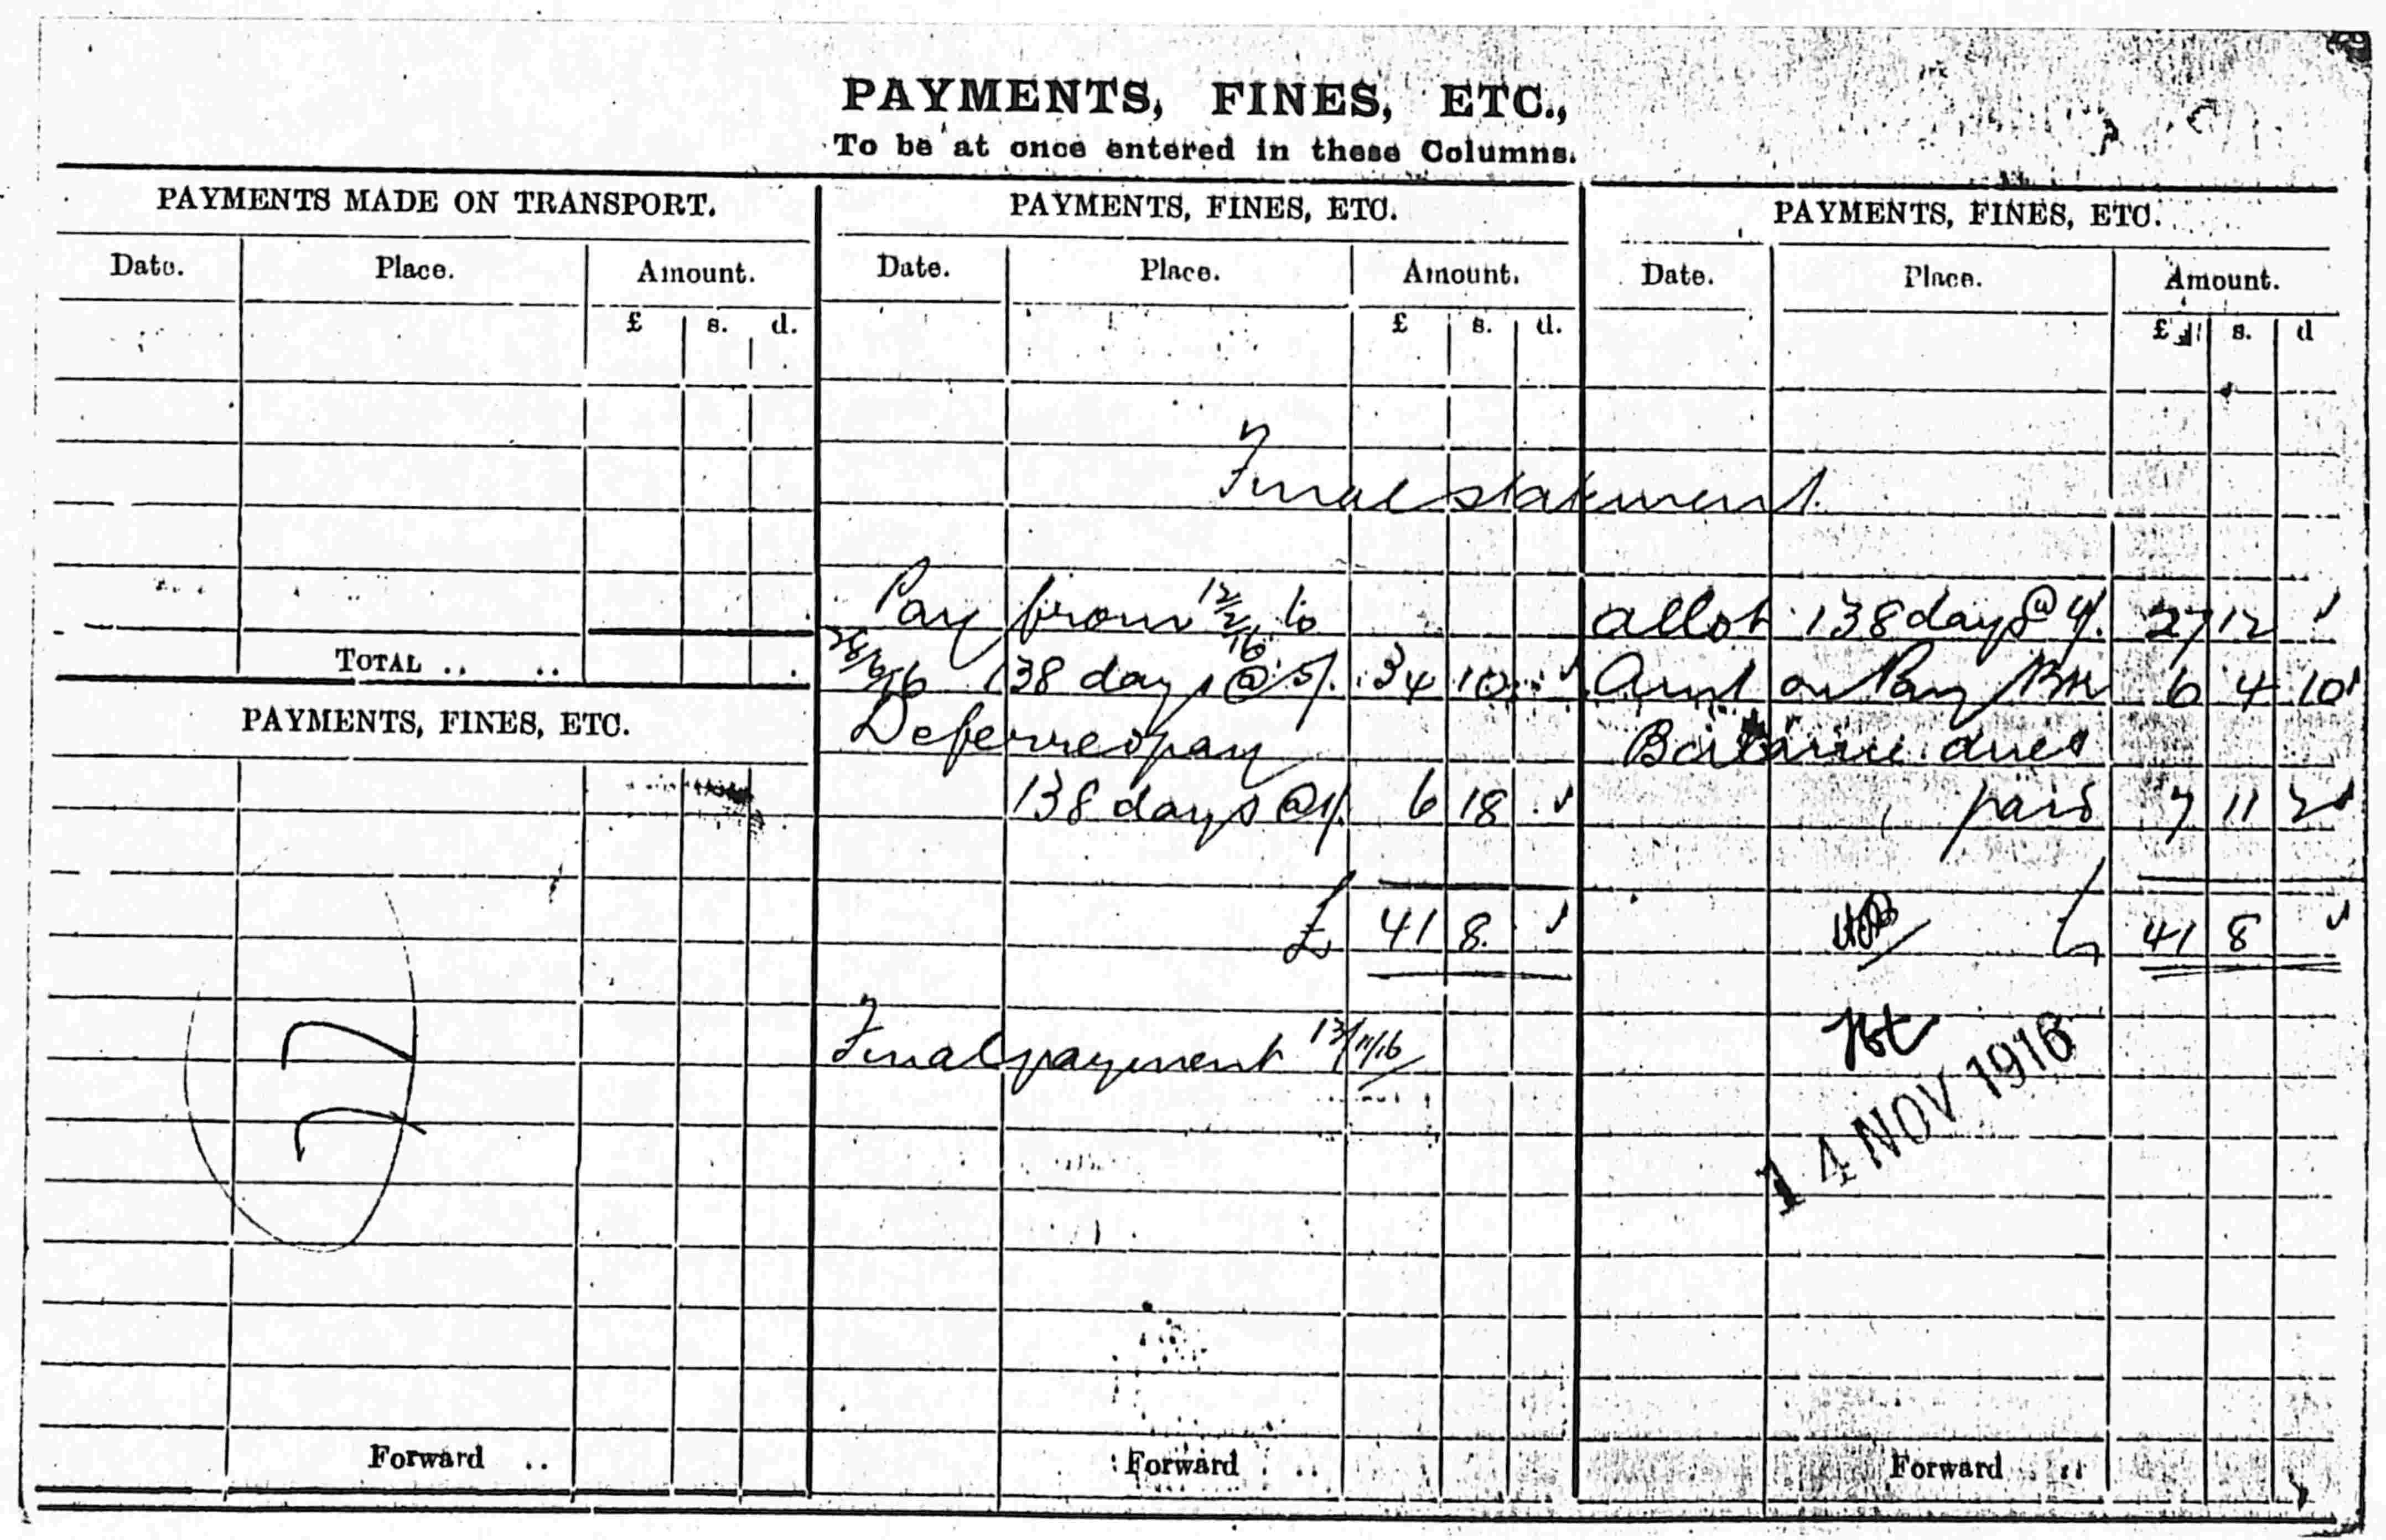 PAYMENTS, FINES, ETC.,
To be at once entered in these Columns.
PAYMENTS MADE ON TRANSPORT.
Date. Place. Amount.
£ s. d.
TOTAL .. ..
PAYMENTS, FINES, ETC.
27
Forward ..
PAYMENTS, FINES, ETC.
Date. Place. Amount.
£ s. d.
Final statement
Pay from 12/2/16 to
28/6/16 138 days @ 5/. 34 10
Deferred pay
138 days @ 1/. 6 18
£ 41 8
Final payment 13/11/16
Forward ..
PAYMENTS, FINES, ETC.
Date. Place. Amount.
£ s. d
allot 138 days @ 4/. 27 12
Amt on Pay Bk 6 4 10
Balance dues
paid 7 11 2
£ 41 8
14 NOV 1916
Forward ..